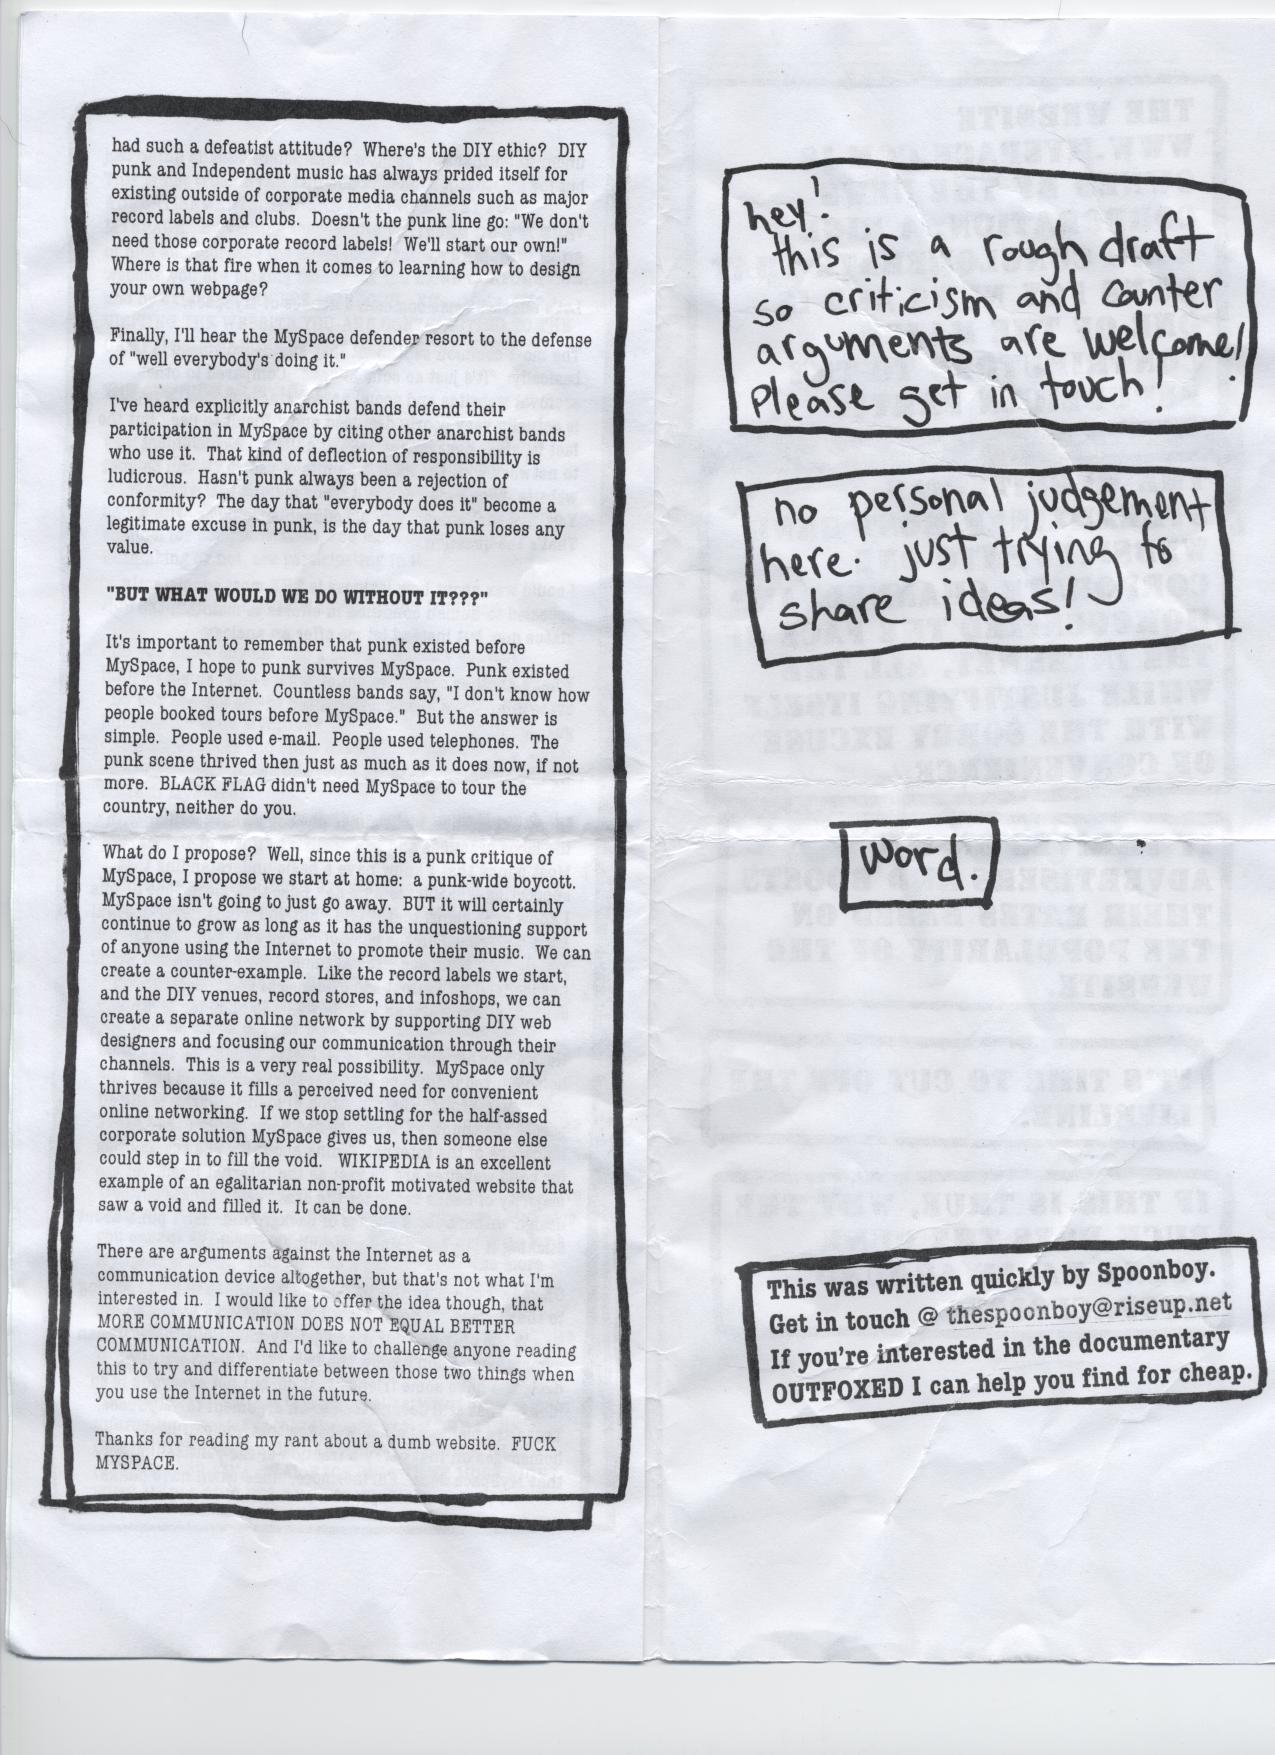 had such a defeatist attitude?  Where's the DIY ethic?  DIY
punk and Independent music has always prided itself for
existing outside of corporate media channels such as major
record labels and clubs.  Doesn't the punk line go: "We don't
need those corporate record labels!  We'll start our own!"
Where is that fire when it comes to learning how to design
your own webpage?
Finally, I'll hear the MySpace defender resort to the defense
of "well everybody's doing it."
I've heard explicitly anarchist bands defend their
participation in MySpace by citing other anarchist bands
who use it.  That kind of deflection of responsibility is
ludicrous.  Hasn't punk always been a rejection of
conformity?  The day that "everybody does it" become a
legitimate excuse in punk, is the day that punk loses any
value.
"BUT WHAT WOULD WE DO WITHOUT IT???"
It's important to remember that punk existed before
MySpace, I hope to punk survives MySpace.  Punk existed
before the Internet.  Countless bands say, "I don't know how
people booked tours before MySpace."  But the answer is
simple.  People used e-mail.  People used telephones.  The
punk scene thrived then just as much as it does now, if not
more.  BLACK FLAG didn't need MySpace to tour the
country, neither do you.
What do I propose?  Well, since this is a punk critique of
MySpace, I propose we start at home:  a punk-wide boycott.
MySpace isn't going to just go away.  BUT it will certainly
continue to grow as long as it has the unquestioning support
of anyone using the Internet to promote their music.  We can
create a counter-example.  Like the record labels we start,
and the DIY venues, record stores, and infoshops, we can
create a separate online network by supporting DIY web
designers and focusing our communication through their
channels.  This is a very real possibility.  MySpace only
thrives because it fills a perceived need for convenient
online networking.  If we stop settling for the half-assed
corporate solution MySpace gives us, then someone else
could step in to fill the void.  WIKIPEDIA is an excellent
example of an egalitarian non-profit motivated website that
saw a void and filled it.  It can be done.
There are arguments against the Internet as a
communication device altogether, but that's not what I'm
interested in.  I would like to offer the idea though, that
MORE COMMUNICATION DOES NOT EQUAL BETTER
COMMUNICATION.  And I'd like to challenge anyone reading
this to try and differentiate between those two things when
you use the Internet in the future.
Thanks for reading my rant about a dumb website.  FUCK
MYSPACE.
hey!
this is a rough draft
so criticism and counter
arguments are welcome!
please get in touch!
no personal judgement
here. just trying to
share ideas!
word.
This was written quickly by Spoonboy.
Get in touch @ thespoonboy@riseup.net
If you're interested in the documentary
OUTFOXED I can help you find for cheap.